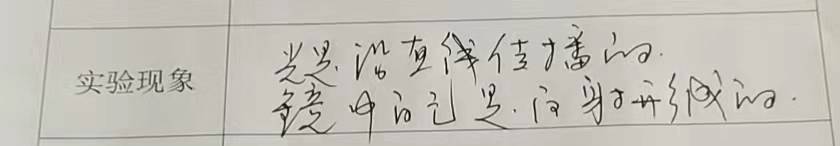 实验现象
光是沿直线传播的.
镜中的它是.的射形成的.